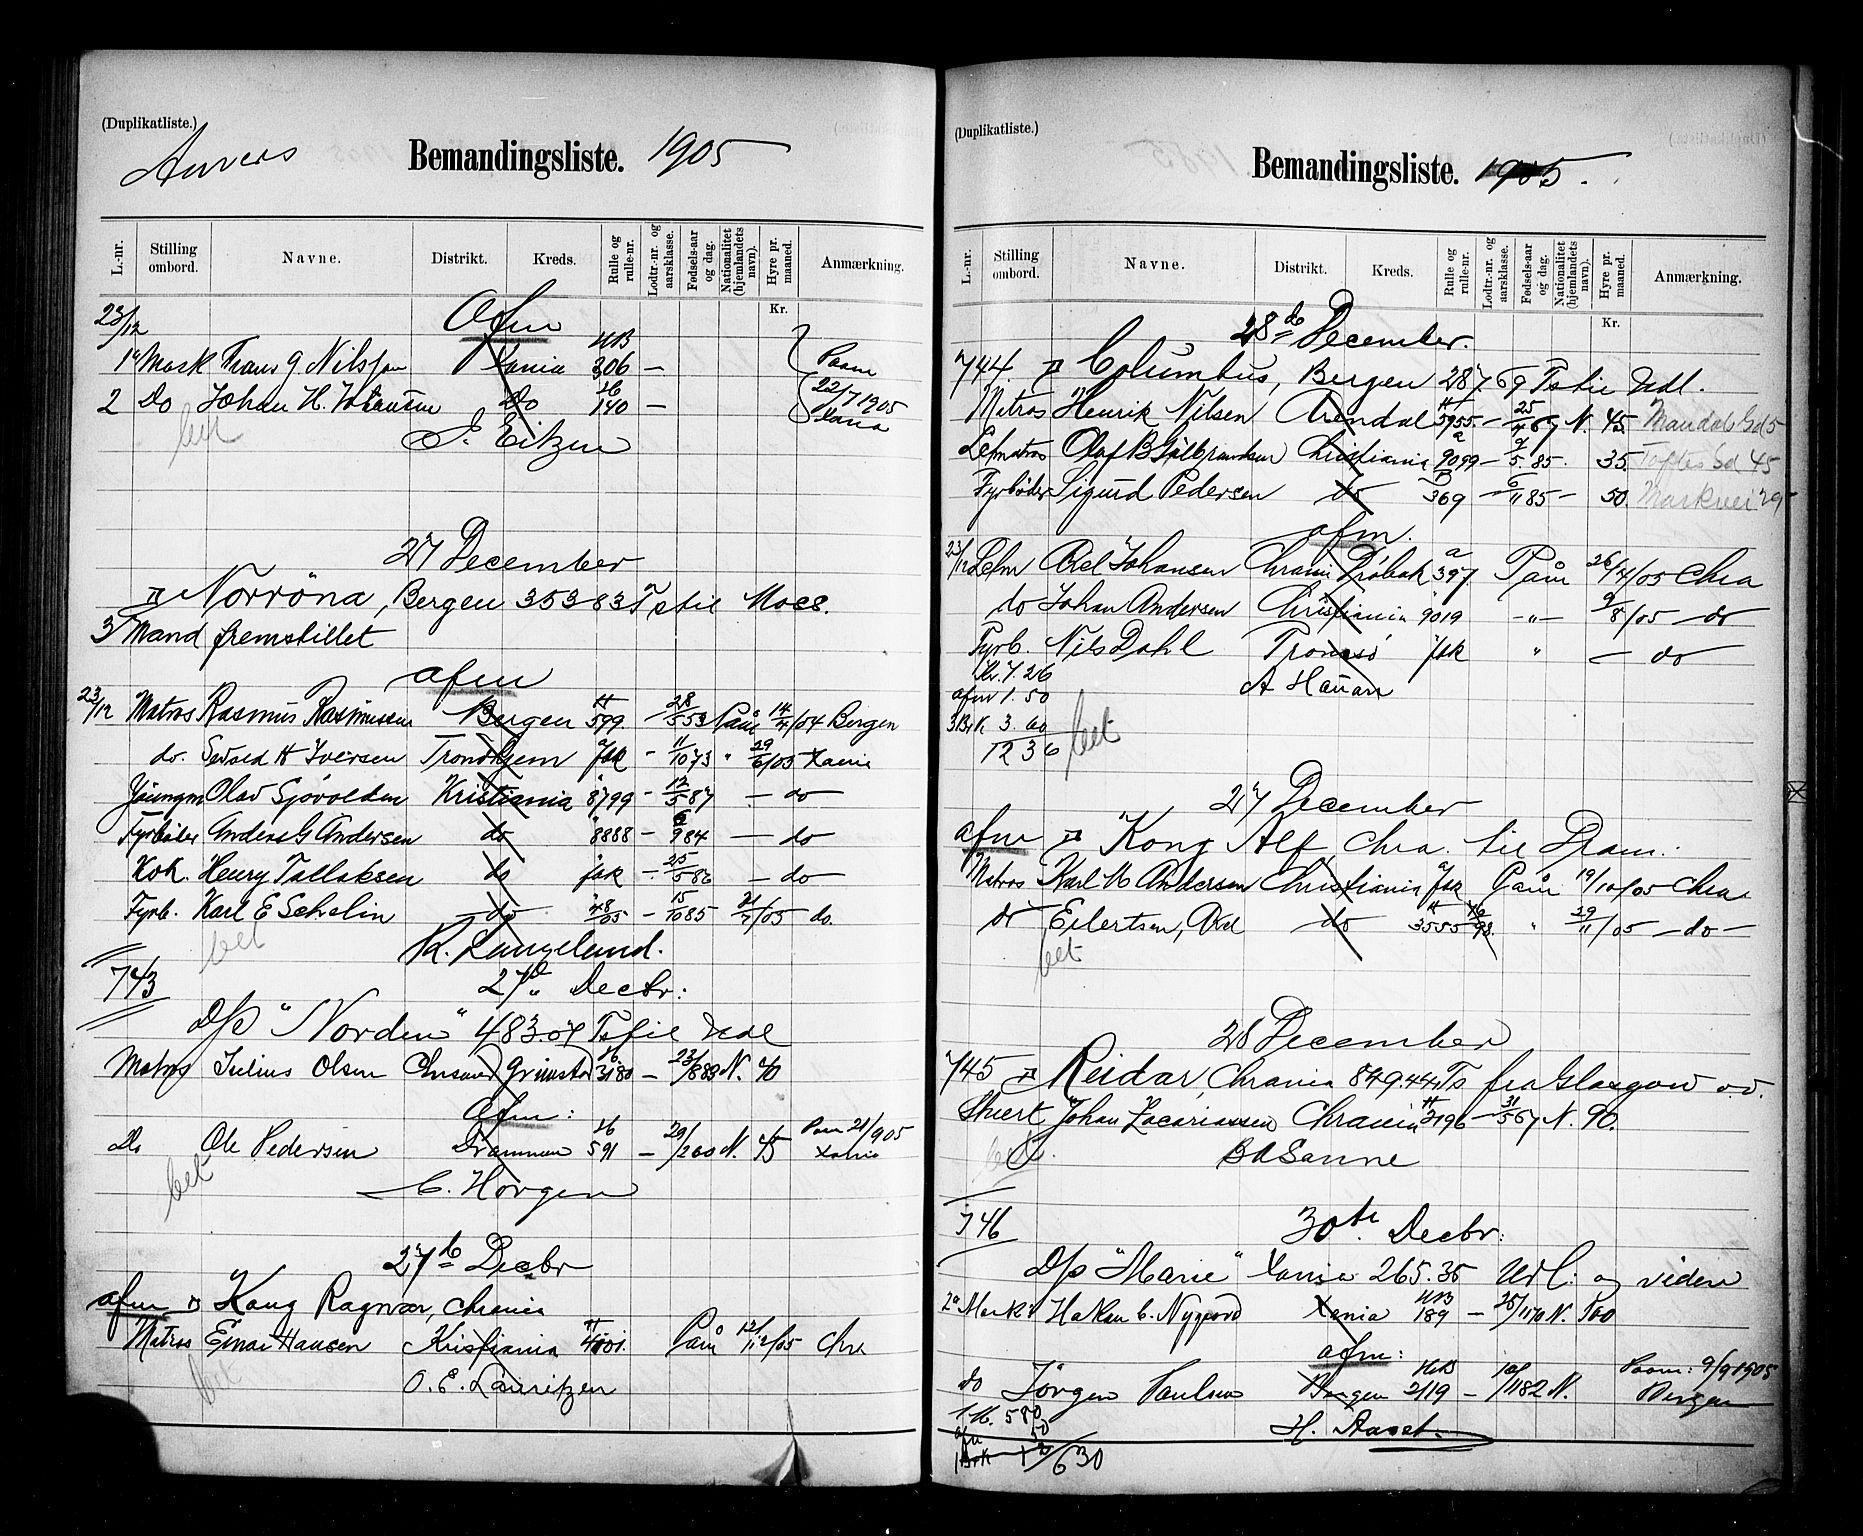 (Duplikatliste.)
Anvers
Bemandingsliste. 1905
L.-nr. Stilling ombord. Navne. Distrikt. Kreds. Rulle og rulle-nr. Lodtr.-nr. og aarsklasse. Fødsels-aar og dag. Nationalitet (hjemlandets navn). Hyre pr. maaned. Anmærkning.
Kr.
23/12 Afm
1ste Mask Frans G Nilsson Xania 306 — Paam
2 Do Johan H. Johansen Do 140 — 22/7 1905 Xania
bet J. Eitzen
27 December
Norröna, Bergen 353 83 Ts til Moss.
3 Mand fremstillet
afm
23/12 Matros Rasmus Rasmussen Bergen 599 — 28/5 53 Paam 14/4/04 Bergen
do. H Iversen Trondhjem fak - 11/10 73 " 29/6/05 Xania
Jüngm Olav Sjövolden Kristiania 8799 - 12/5 87 — do
Fyrböder Anders G Andersen do 8888 — 6/9 84 — do
Kok. Henry Tallaksen do fak — 25/5 86 — do
Fyrb. Karl E Schelin do 48/05 — 15/10 85 21/7/05 do.
bet K. Langeland.
743 27de Decbr:
D/S "Norden" 483.07 Ts til Udl
Matros Julius Olsen Chrsand Grimstad 3180 — 23/8 83 N. 70
Afm:
Do Ole Pedersen Drammen 591 — 29/2 60 N. 75 Paam 21/905 Xania
bet C. Horgen
27de Decbr
afm Kong Ragnar, Chrania
Matros Einar Hansen Kristiania 4001. Paam 12/12/05 Chra
bet O. E. Lauritzen
(Duplikatliste.)
Bemandingsliste. 1905.
L.-nr. Stilling ombord. Navne. Distrikt. Kreds. Rulle og rulle-nr. Lodtr.-nr. og aarsklasse. Fødsels-aar og dag. Nationalitet (hjemlandets navn). Hyre pr. maaned. Anmærkning.
Kr.
28de December.
744. Columbus, Bergen 287 69 Ts til Udl.
Matros Henrik Nilsen Arendal 5955 — 25/4 67 N. 45. Mandals Gd 5
Letmatros Olaf B Gulbrandsen Christiania 9099 — 9/5. 85. 35. Toftes Gd 45
Fyrböder Sigurd Pedersen do 369 — 6/11 85 — 50. Markvei 29
afm.
23/12 Letm Axel Johansen Chrania Dröbak 397 Paam 26/4/05 Chra
do Johan Andersen Christiania 9019 —"— 9/8/05 — do
Fyrb. Nils Dahl Tromsö fak " — do
Kr. 7.26 A Hauan
afm 1.50
3 Bk 3.60
12 36 bet
27 December
afm Kong Alf, Chra. til Dram.
Matros Karl M Andersen Christiania fak Paam 19/10/05 Chra
do Eilertsen, Axel do 3555 " 29/11/05 — do —
bet
28 December
745 Reidar, Chrania 849.44 Ts fra Glasgow o.v.
Stuert Johan Zacariassen Chrania 2196 — 31/5 67 N. 90.
B A Sanne
746 30te Decbr:
D/S "Marie" Xania 265.35 Udl: og videre
2den Mask: Hakon C. Nygaard Xania 189 — 25/11 70 N. 100
afm:
do Jörgen Paulsen Bergen 219 — 11 82 N. Paam: 9/9 1905 Bergen
1 M. 580
afm 50 H. Aaset.
1 Bok 630